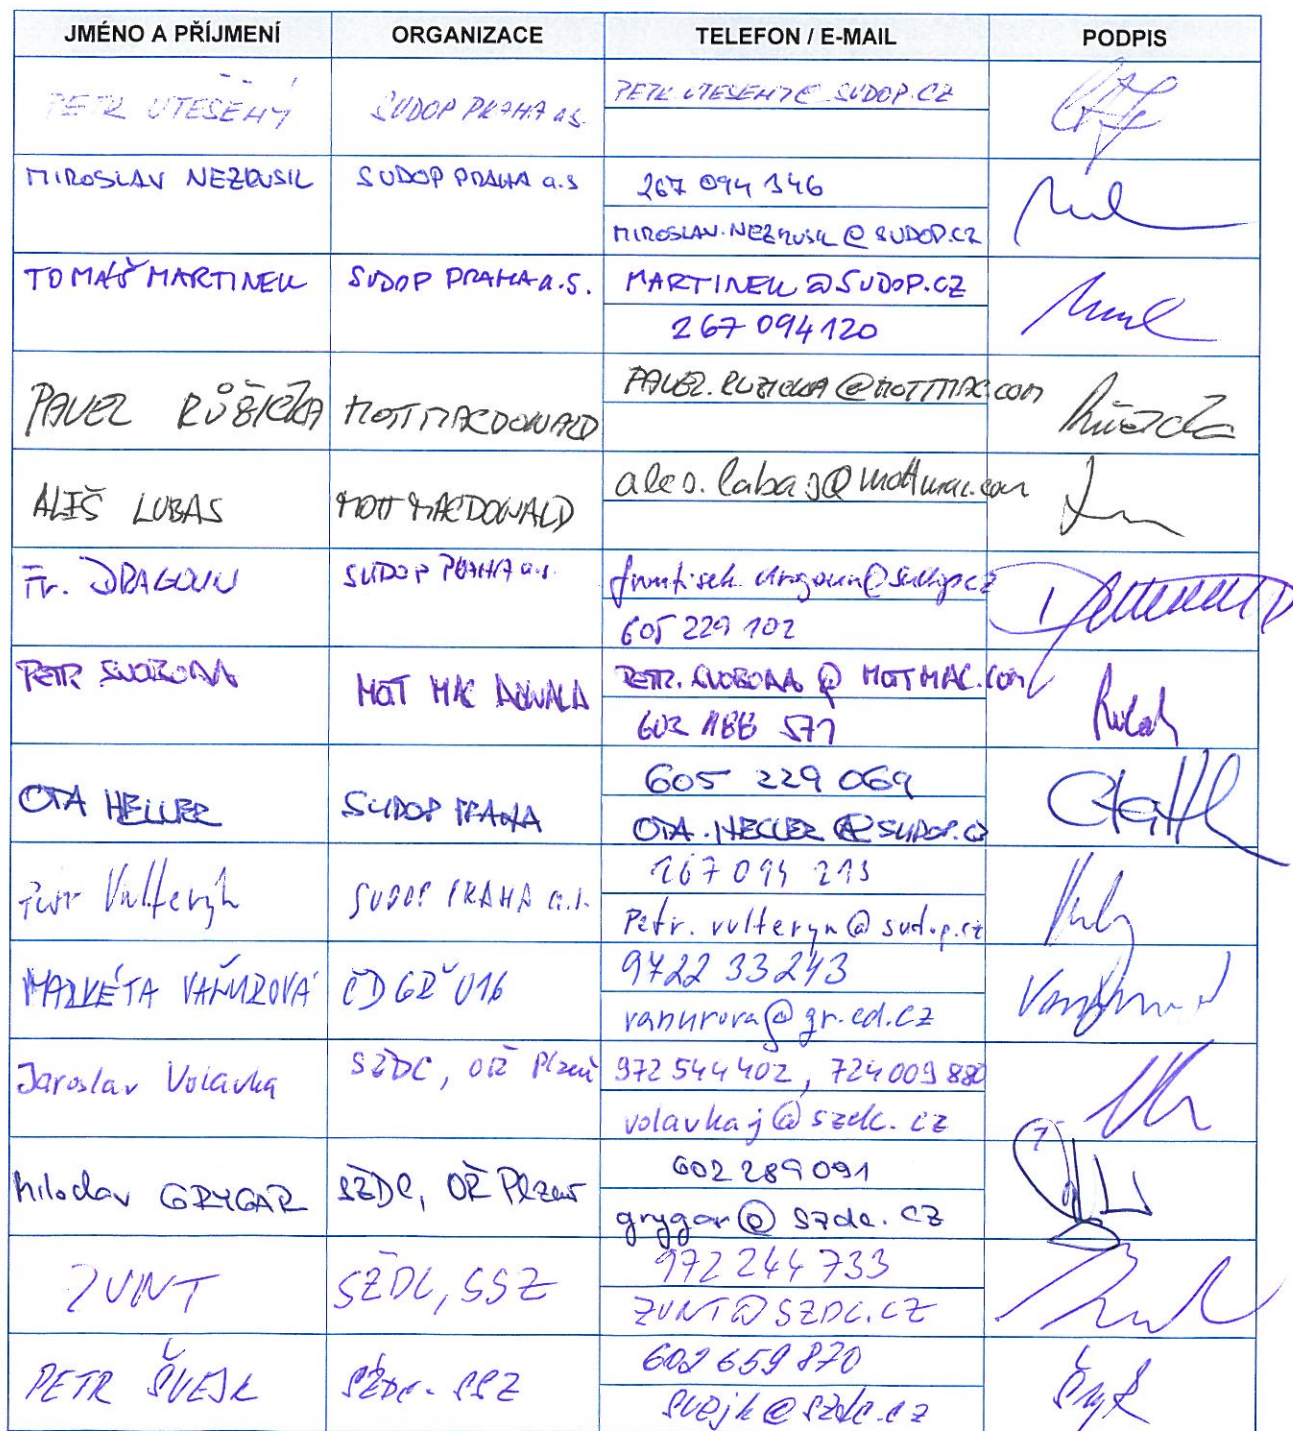 JMÉNO A PŘÍJMENÍ ORGANIZACE TELEFON / E-MAIL PODPIS
PETR UTĚŠENÝ SUDOP PRAHA a.s. PETR.UTESENY@SUDOP.CZ
MIROSLAV NEZKUSIL SUDOP PRAHA a.s 267 094 346
MIROSLAV.NEZKUSIL@SUDOP.CZ
TOMÁŠ MARTINEK SUDOP PRAHA a.s. MARTINEK@SUDOP.CZ
267 094 120
PAVEL RŮŽIČKA MOTT MACDONALD PAVEL.RUZICKA@MOTTMAC.COM
ALEŠ LUBAS MOTT MACDONALD
Fr. DRAGOUN SUDOP PRAHA a.s. frantisek.dragoun@sudop.cz
605 229 102
PETR SVOBODA MOT MAC DONALD PETR.SVOBODA@MOTTMAC.COM
602 188 571
OTA HELLER SUDOP PRAHA 605 229 069
OTA.HELLER@SUDOP.CZ
Petr Vulteryn SUDOP PRAHA a.s. 267 094 213
Petr.vulteryn@sudop.cz
MARKÉTA VAŇUROVÁ ČD GŘ O16 9722 33243
vanurova@gr.cd.cz
Jaroslav Volavka SŽDC, OŘ Plzeň 972 544 402, 724 009 880
volavkaj@szdc.cz
Miloslav GRYGAR SŽDC, OŘ Plzeň 602 289 091
grygar@szdc.cz
ZUNT SŽDC, SSZ 972 244 733
ZUNT@SZDC.CZ
PETR ŠVEJK SŽDC-SSZ 602 659 870
svejk@szdc.cz